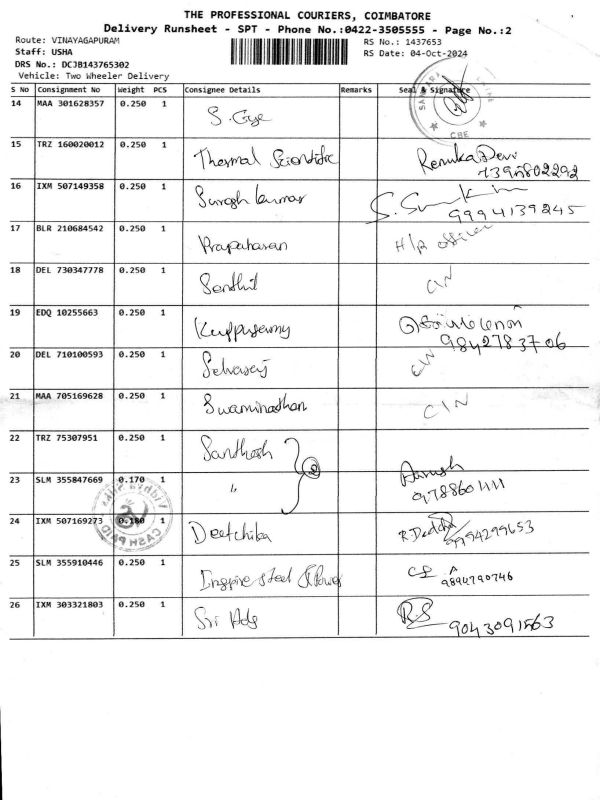 THE PROFESSIONAL COURIERS, COIMBATORE
Delivery Runsheet - SPT - Phone No.:0422-3505555 - Page No.:2
Route: VINAYAGAPURAM
RS No.: 1437653
Staff: USHA
RS Date: 04-Oct-2024
DRS No.: DCJB143765302
Vehicle: Two Wheeler Delivery
S No Consignment No Weight PCS Consignee Details Remarks Seal & Signature
14 MAA 301628357 0.250 1
CBE
15 TRZ 160020012 0.250 1 Thermal Scientific Renuka Devi
7395802292
16 IXM 507149358 0.250 1 Suresh kumar
9994139245
17 BLR 210684542 0.250 1 Prapaharan H/R officer
18 DEL 730347778 0.250 1 Senthil
19 EDQ 10255663 0.250 1 Kuppusamy
9842783706
20 DEL 710100593 0.250 1 Selvaraj
21 MAA 705169628 0.250 1 Swaminathan
22 TRZ 75307951 0.250 1 Santhosh 2
23 SLM 355847669 0.170 1 "
9788601111
24 IXM 507169273 0.180 1 Deetchika
9994299653
CASH PAID
25 SLM 355910446 0.250 1 Inspire steel & Power
9894790746
26 IXM 303321803 0.250 1 Sri Ads R.S
9043091563